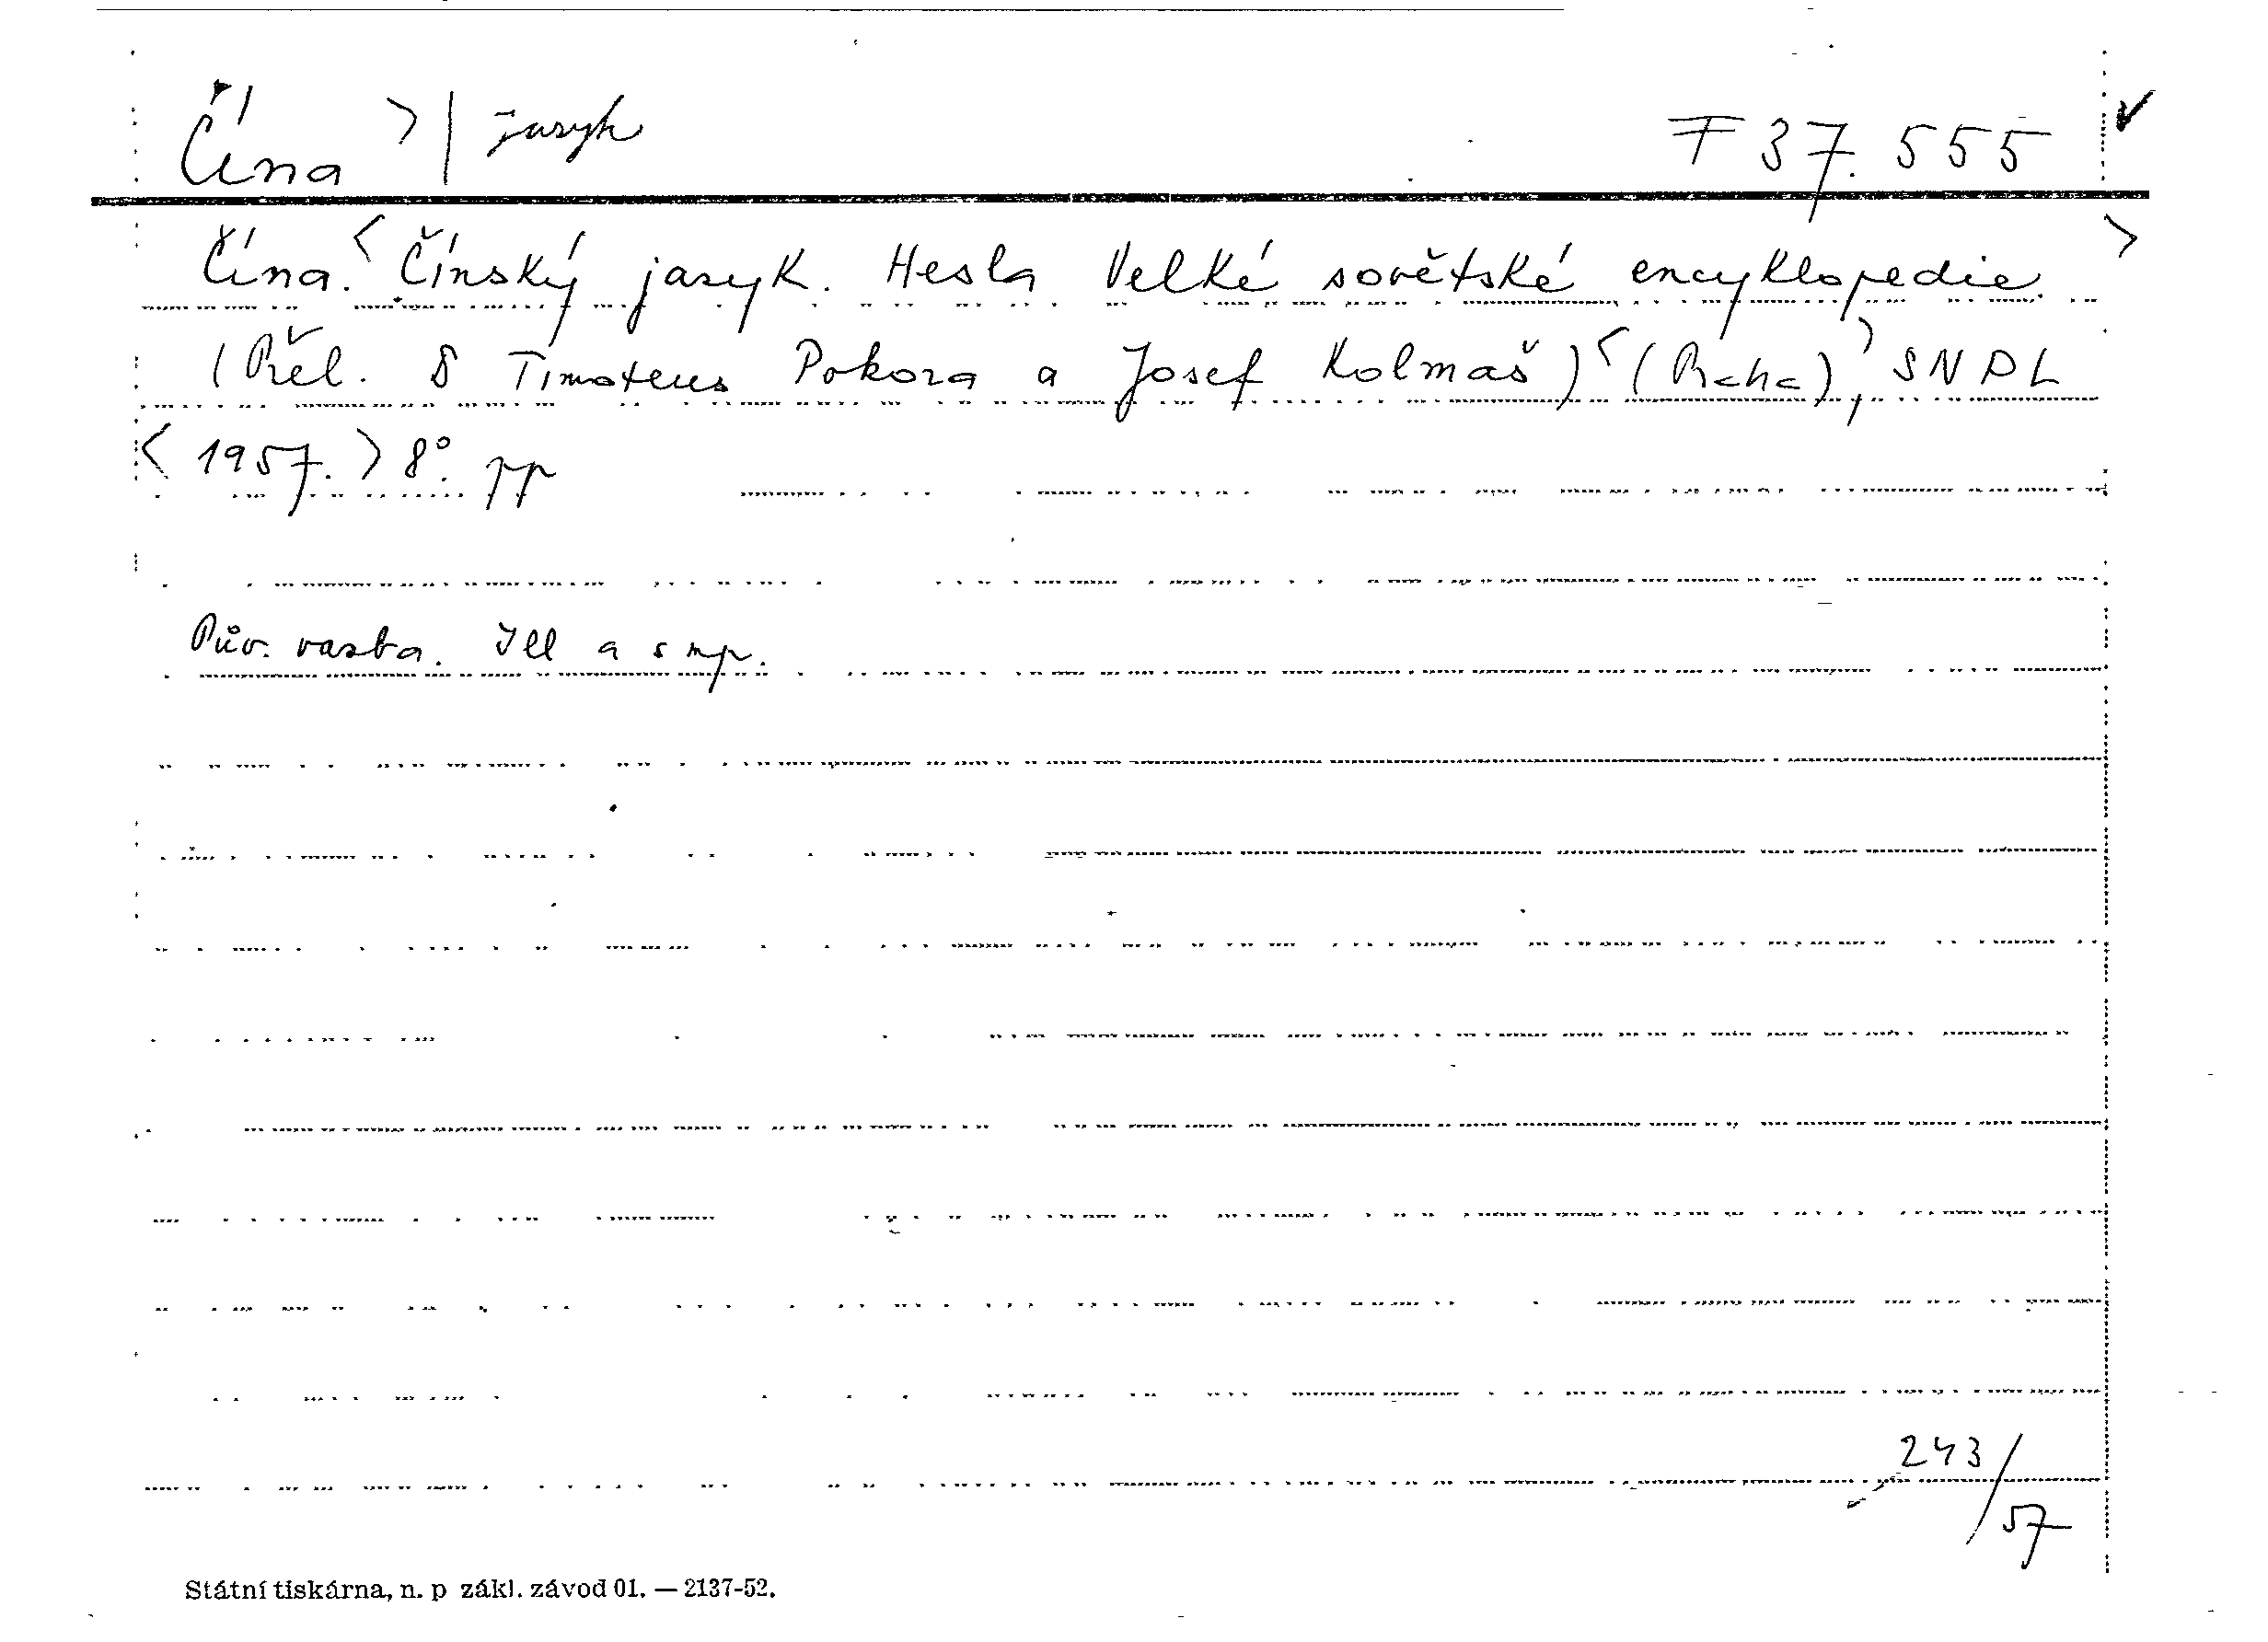 Čína > | jazyk F 37.555 ✓
Čína. < Čínský jazyk. Hesla Velké sovětské encyklopedie. >
(Přel. Timoteus Pokora a Josef Kolmaš) < (Praha) >, SNPL
< 1957. > 8°. pp
Pův. vazba. Ill a s mp.
243/57
Státní tiskárna, n. p zákl. závod 01. — 2137-52.